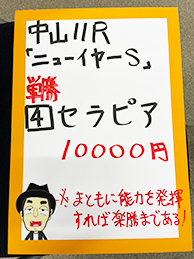 中山11R
「ニューイヤーS」
単勝
4 セラピア
10000円
※まともに能力を発揮
すれば楽勝まである!